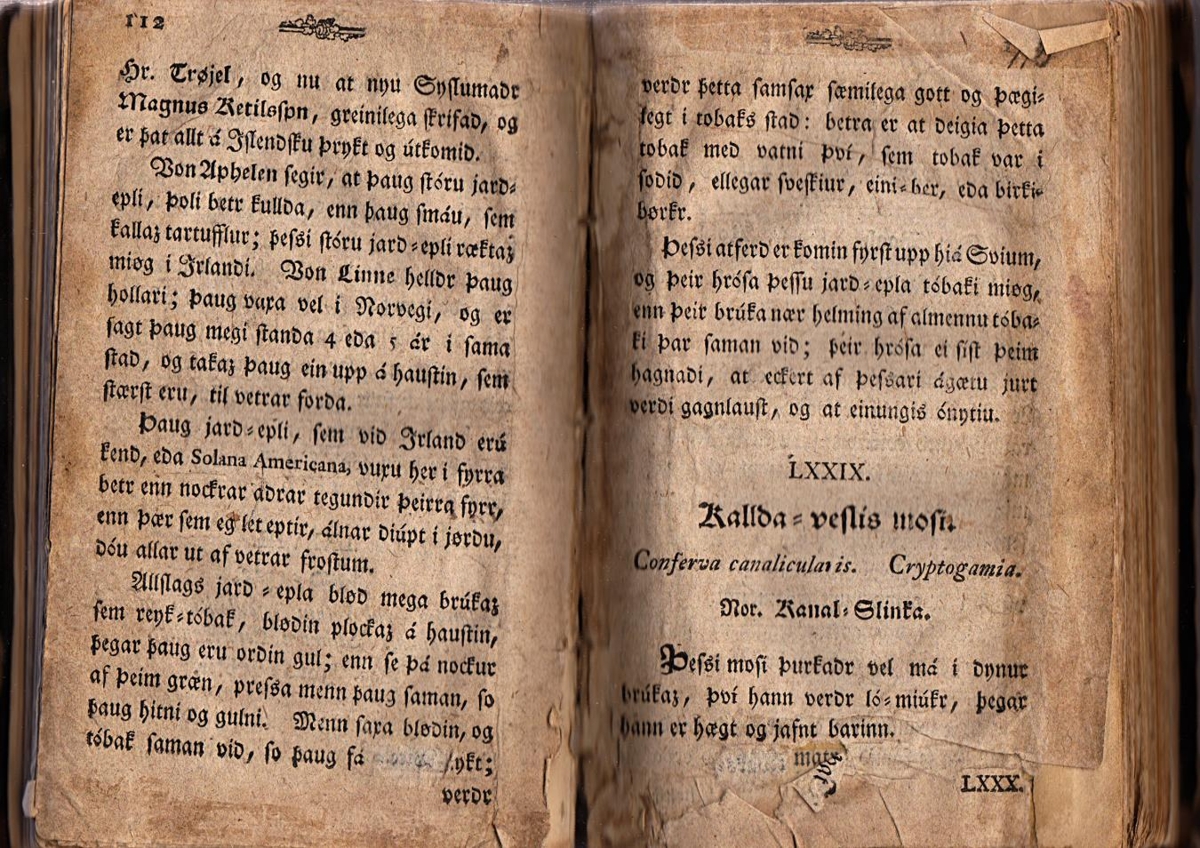 112
Hr. Trøjel, og nu at nyu Syslumadr
Magnus Ketilsson, greinilega skrifad, og
er þat allt á Islendsku þrykt og útkomid.
Von Aphelen segir, at þaug stóru jard-
epli, þoli betr kullda, enn þaug smáu, sem
kallaz tartufflur; þessi stóru jard-epli ræktaz
miøg i Irlandi. Von Linne helldr þaug
hollari; þaug vaxa vel i Norvegi, og er
sagt þaug megi standa 4 eda 5 ár i sama
stad, og takaz þaug ein upp á haustin, sem
stærst eru, til vetrar forda.
Þaug jard-epli, sem vid Irland erú
kend, eda Solana Americana, vuxu her i fyrra
betr enn nockrar adrar tegundir þeirra fyrr,
enn þær sem eg let eptir, álnar diúpt i jørdu,
dóu allar ut af vetrar frostum.
Allslags jard-epla bløð mega brúkaz
sem reyk-tóbak, blødin plockaz á haustin,
þegar þaug eru ordin gul; enn se þá nockur
af þeim græn, pressa menn þaug saman, so
þaug hitni og gulni. Menn saxa blødin, og
tóbak saman vid, so þaug fá ykt;
verdr
verdr þetta samsax sæmilega gott og þægi-
legt i tobaks stad: betra er at deigia þetta
tobak med vatni því, sem tobak var i
sodid, ellegar sveskiur, eini-ber, eda birki-
børkr.
Þessi atferd er komin fyrst upp hiá Svium,
og þeir hrósa þessu jard-epla tóbaki miøg,
enn þeir brúka nær helming af almennu tóba-
ki þar saman vid; þeir hrósa ei sist þeim
hagnadi, at eckert af þessari ágætu jurt
verdi gagnlaust, og at einungis ónytiu.
LXXIX.
Kallda-veslis mosi.
Conferva canalicularis. Cryptogamia.
Nor. Kanal-Slinka.
Þessi mosi þurkadr vel má i dynur
brúkaz, því hann verdr ló-miúkr, þegar
hann er hægt og jafnt barinn.
LXXX.